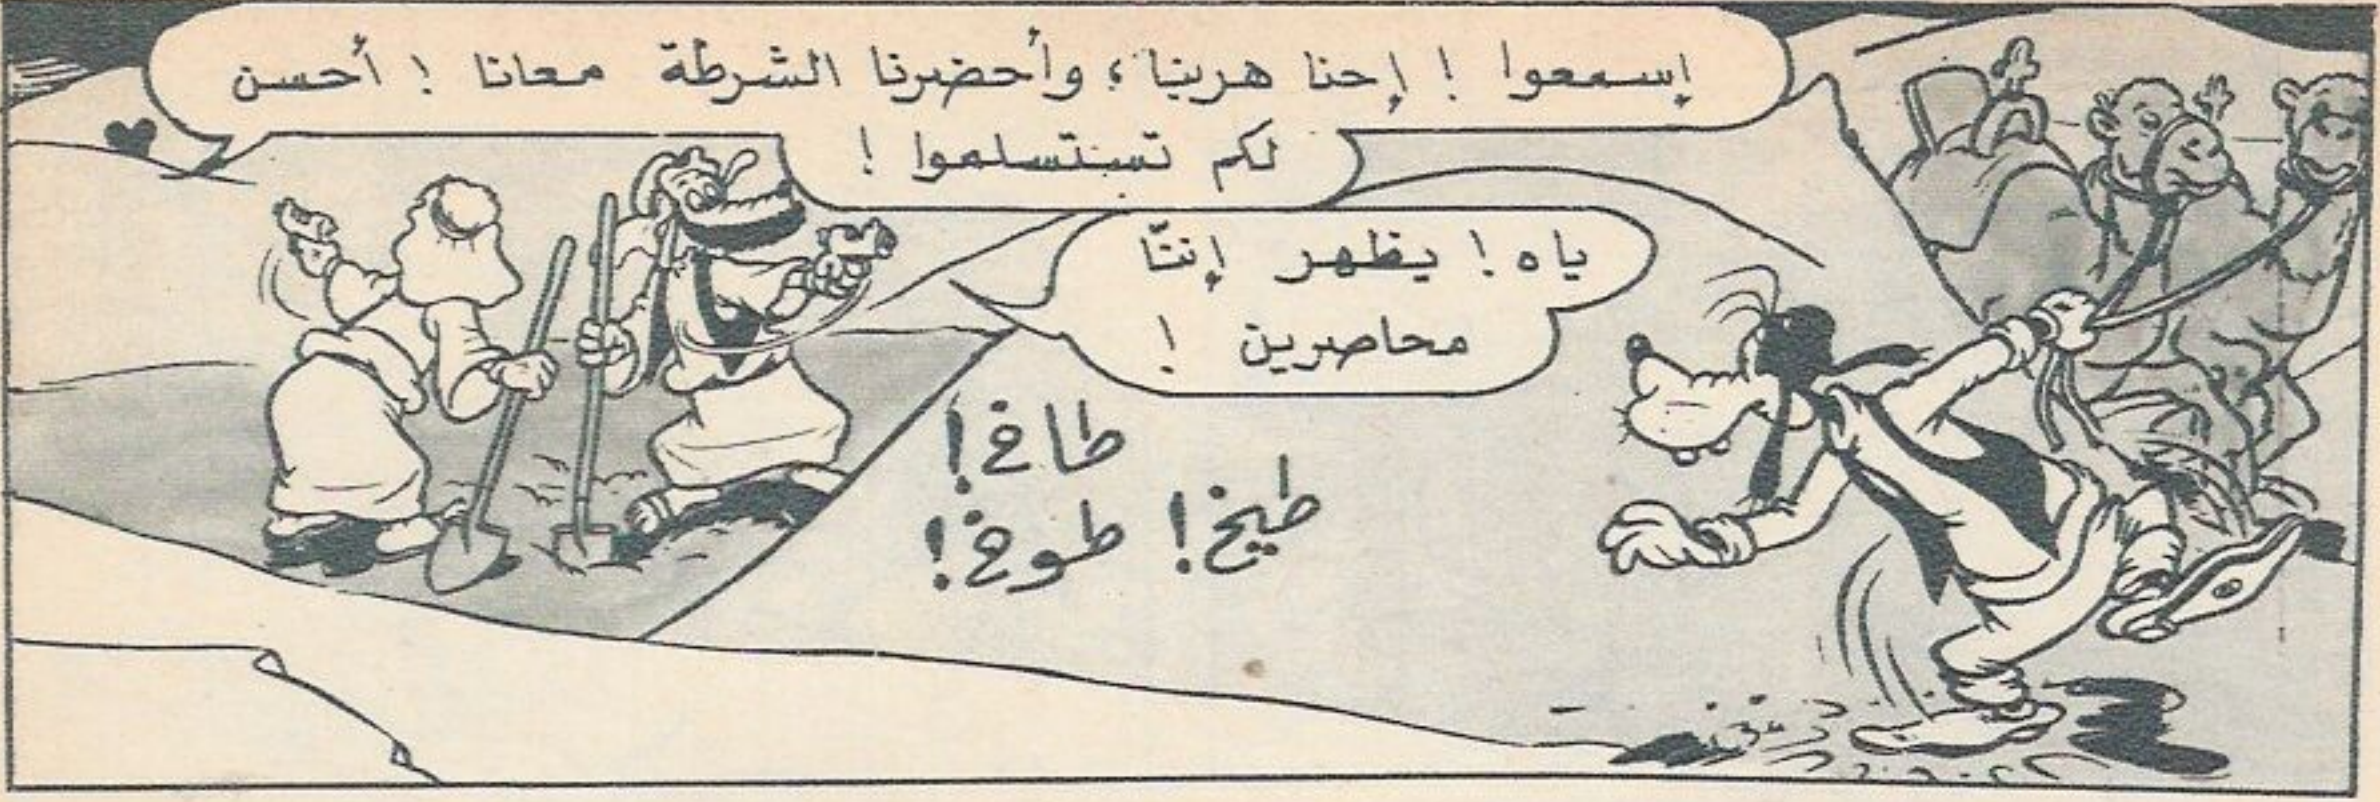 إسمعوا ! إحنا هربنا ؛ وأحضرنا الشرطة معانا ! أحسن
لكم تستسلموا !
ياه ! يظهر إنتّا
محاصرين !
طاخ !
طيخ ! طوخ !